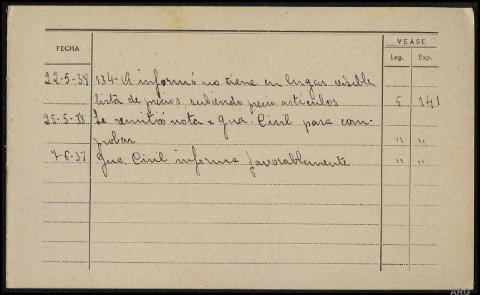 FECHA VEASE
Leg. Exp.
22-5-38 134-A informó no tiene en lugar visible
lista de precios, subiendo precio artículos 5 141
25-5-38 Se remitió nota a Gua. Civil para com-
probar " "
7-6-37 Gua. Civil informa favorablemente " "
ARG